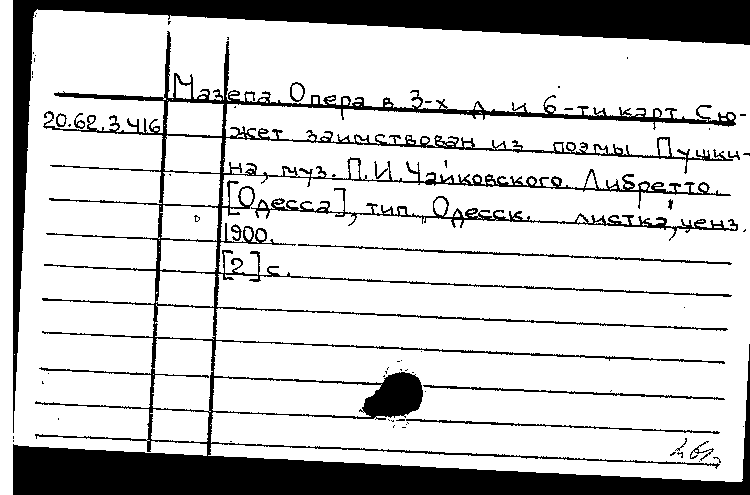 Мазепа. Опера в 3-х д. и 6-ти карт. Сю-
20.62.3.416
жет заимствован из поэмы Пушки-
на, муз. П.И.Чайковского. Либретто.
[Одесса], тип. „Одесск. листка", ценз.
1900.
[2] с.